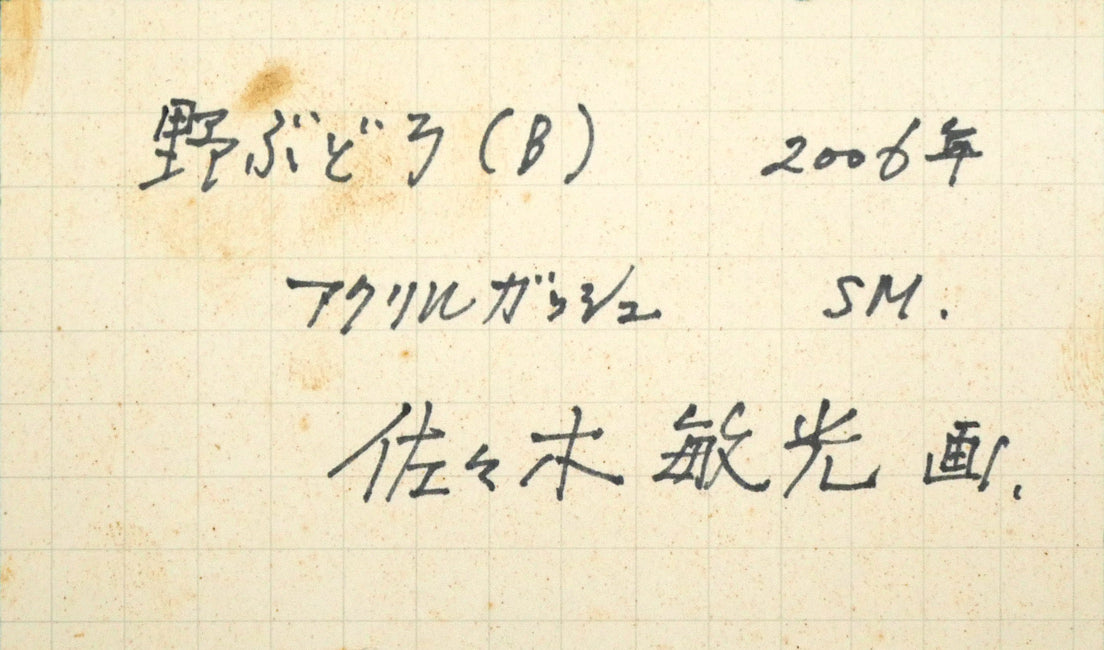 野ぶどう(B) 2006年
アクリルガッシュ SM.
佐々木敏光画.